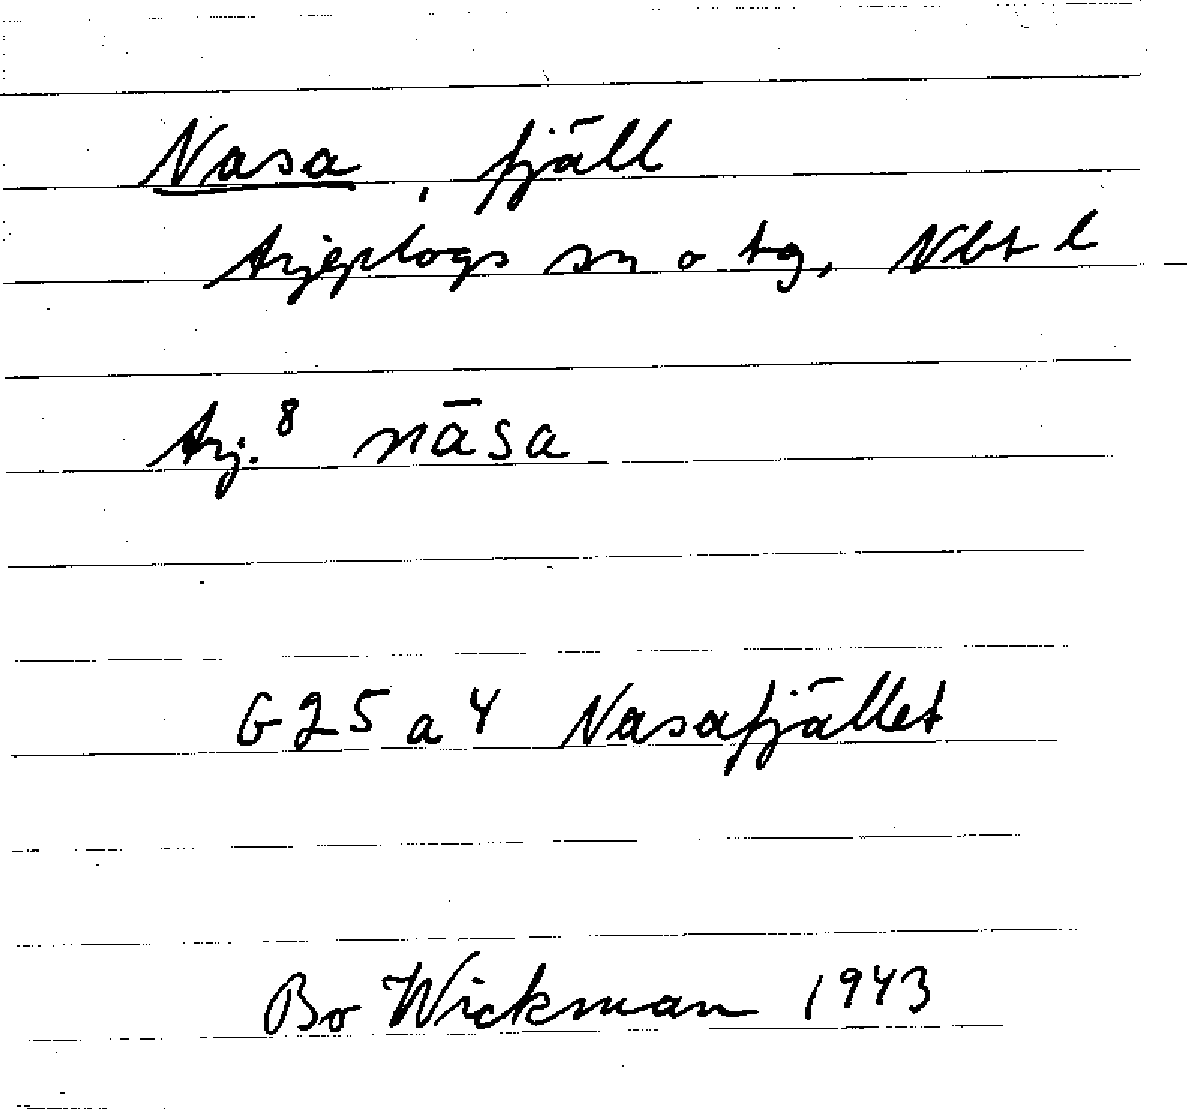 Nasa, fjäll
Arjeplogs sn o tg, Nbt l
Arj.⁸ nāsa
G25 a 4 Nasafjället
Bo Wickman 1943